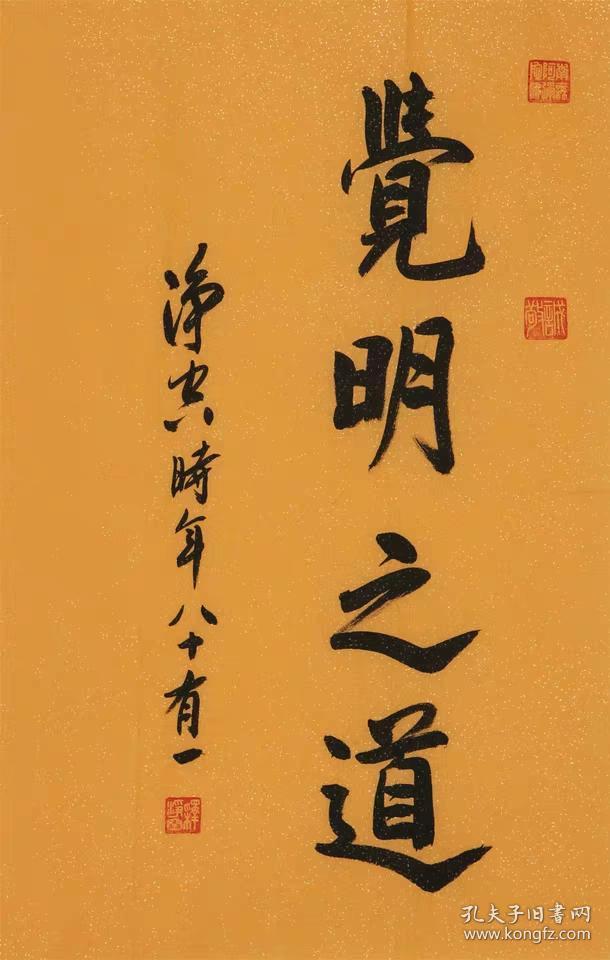 覺明之道
淨空時年八十有一
誠敬
釋淨空
孔夫子旧書网
www.kongfz.com